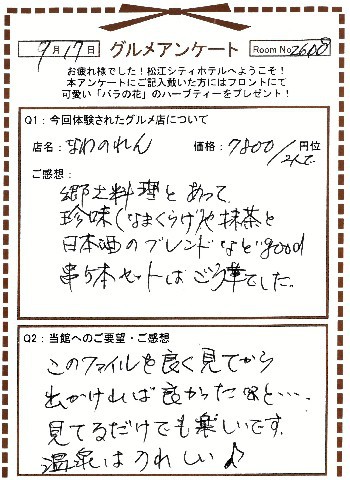 9月17日 グルメアンケート Room No 2608
お疲れ様でした！松江シティホテルへようこそ！
本アンケートにご記入戴いた方にはフロントにて
可愛い「バラの花」のハーブティーをプレゼント！
Q1：今回体験されたグルメ店について
店名：なわのれん 価格：7800/2人で 円位
ご感想：
郷土料理とあって、
珍味(なまくらげ)や抹茶と
日本酒のブレンドなどgood
串5本セットはごう華でした。
Q2：当館へのご要望・ご感想
このファイルを良く見てから
出かければ良かったねと…。
見てるだけでも楽しいです。
温泉はうれしい♪